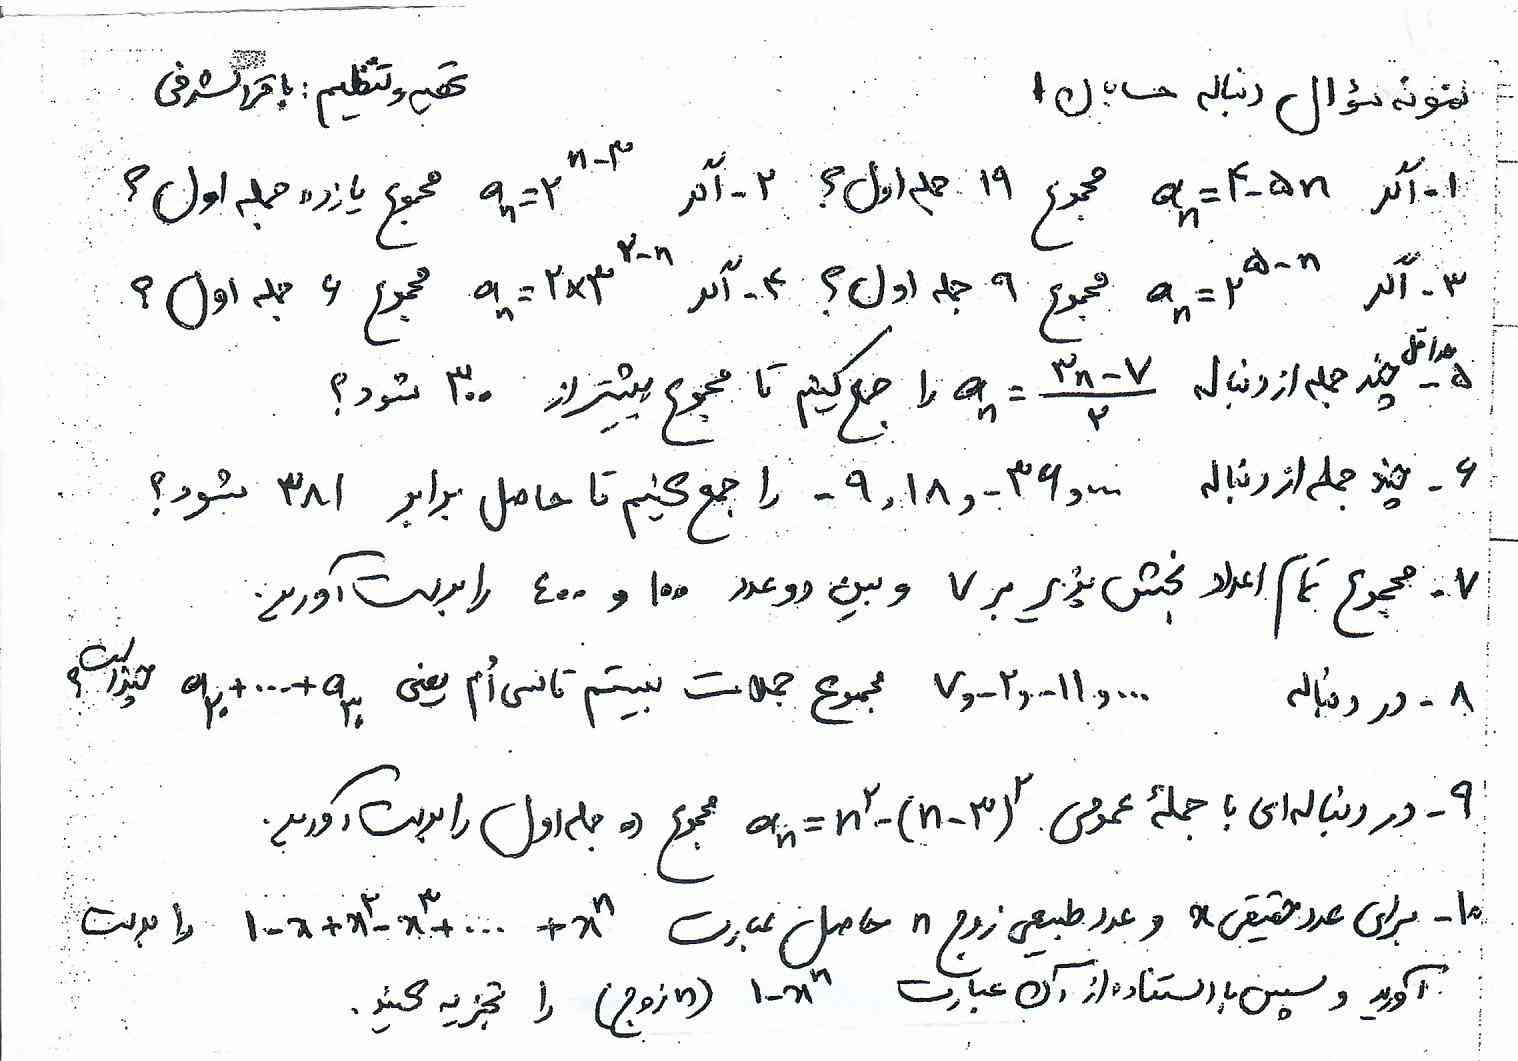 نمونه سؤال دنباله حسابان ۱ تهیه و تنظیم : باقر اشرفی
۱- اگر aₙ = ۴ - ۵n مجموع ۱۹ جمله اول؟ ۲- اگر aₙ = ۲ⁿ⁻³ مجموع یازده جمله اول؟
۳- اگر aₙ = ۲⁵⁻ⁿ مجموع ۹ جمله اول؟ ۴- اگر aₙ = ۲×۳²⁻ⁿ مجموع ۶ جمله اول؟
۵- حداقل چند جمله از دنباله aₙ = (۳n - ۷)/۲ را جمع کنیم تا مجموع بیشتر از ۳۰۰ شود؟
۶- چند جمله از دنباله -۹ و ۱۸ و -۳۶ و ... را جمع کنیم تا حاصل برابر ۳۸۱ شود؟
۷- مجموع تمام اعداد بخش پذیر بر ۷ و بین دو عدد ۱۰۰ و ۴۰۰ را بدست آورید.
۸- در دنباله ۷ و -۲ و -۱۱ و ... مجموع جملات بیستم تا سی اُم یعنی a₂₀ + ... + a₃₀ چقدر است؟
۹- در دنباله ای با جملهٔ عمومی aₙ = n² - (n - ۳)² مجموع ده جمله اول را بدست آورید.
۱۰- برای عدد حقیقی x و عدد طبیعی زوج n حاصل عبارت ۱ - x + x² - x³ + ... + xⁿ را بدست
آورید و سپس با استفاده از آن عبارت ۱ - xⁿ (n زوج) را تجزیه کنید.